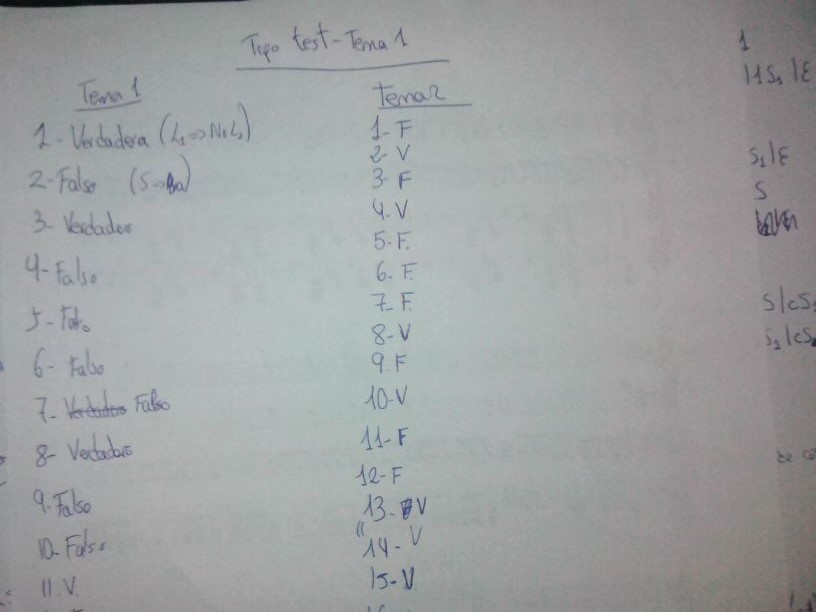 Tipo test-Tema 1
Tema 1
1- Verdadera (L1=>NoL2)
2-Falso (S->Ba)
3- Verdadero
4- Falso
5- Falso
6- Falso
7- Falso
8- Verdadero
9-Falso
10-Falso
11.V.
Tema2
1-F
2-V
3-F
4-V
5-F.
6-F.
7-F.
8-V
9.F
10-V
11-F
12-F
13-V
"14-V
15-V
1
S1/ε
S